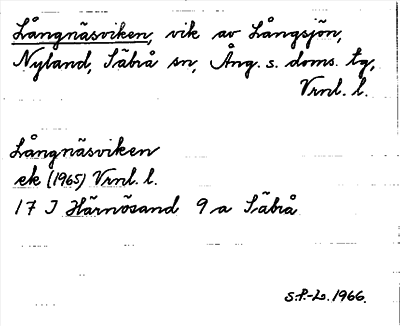 Långnäsviken, vik av Långsjön,
Nyland, Säbrå sn, Ång. s. doms. tg,
Vrnl. l.
Långnäsviken
ek (1965) Vrnl. l.
17 J Härnösand 9 a Säbrå
S.P.-L. 1966.